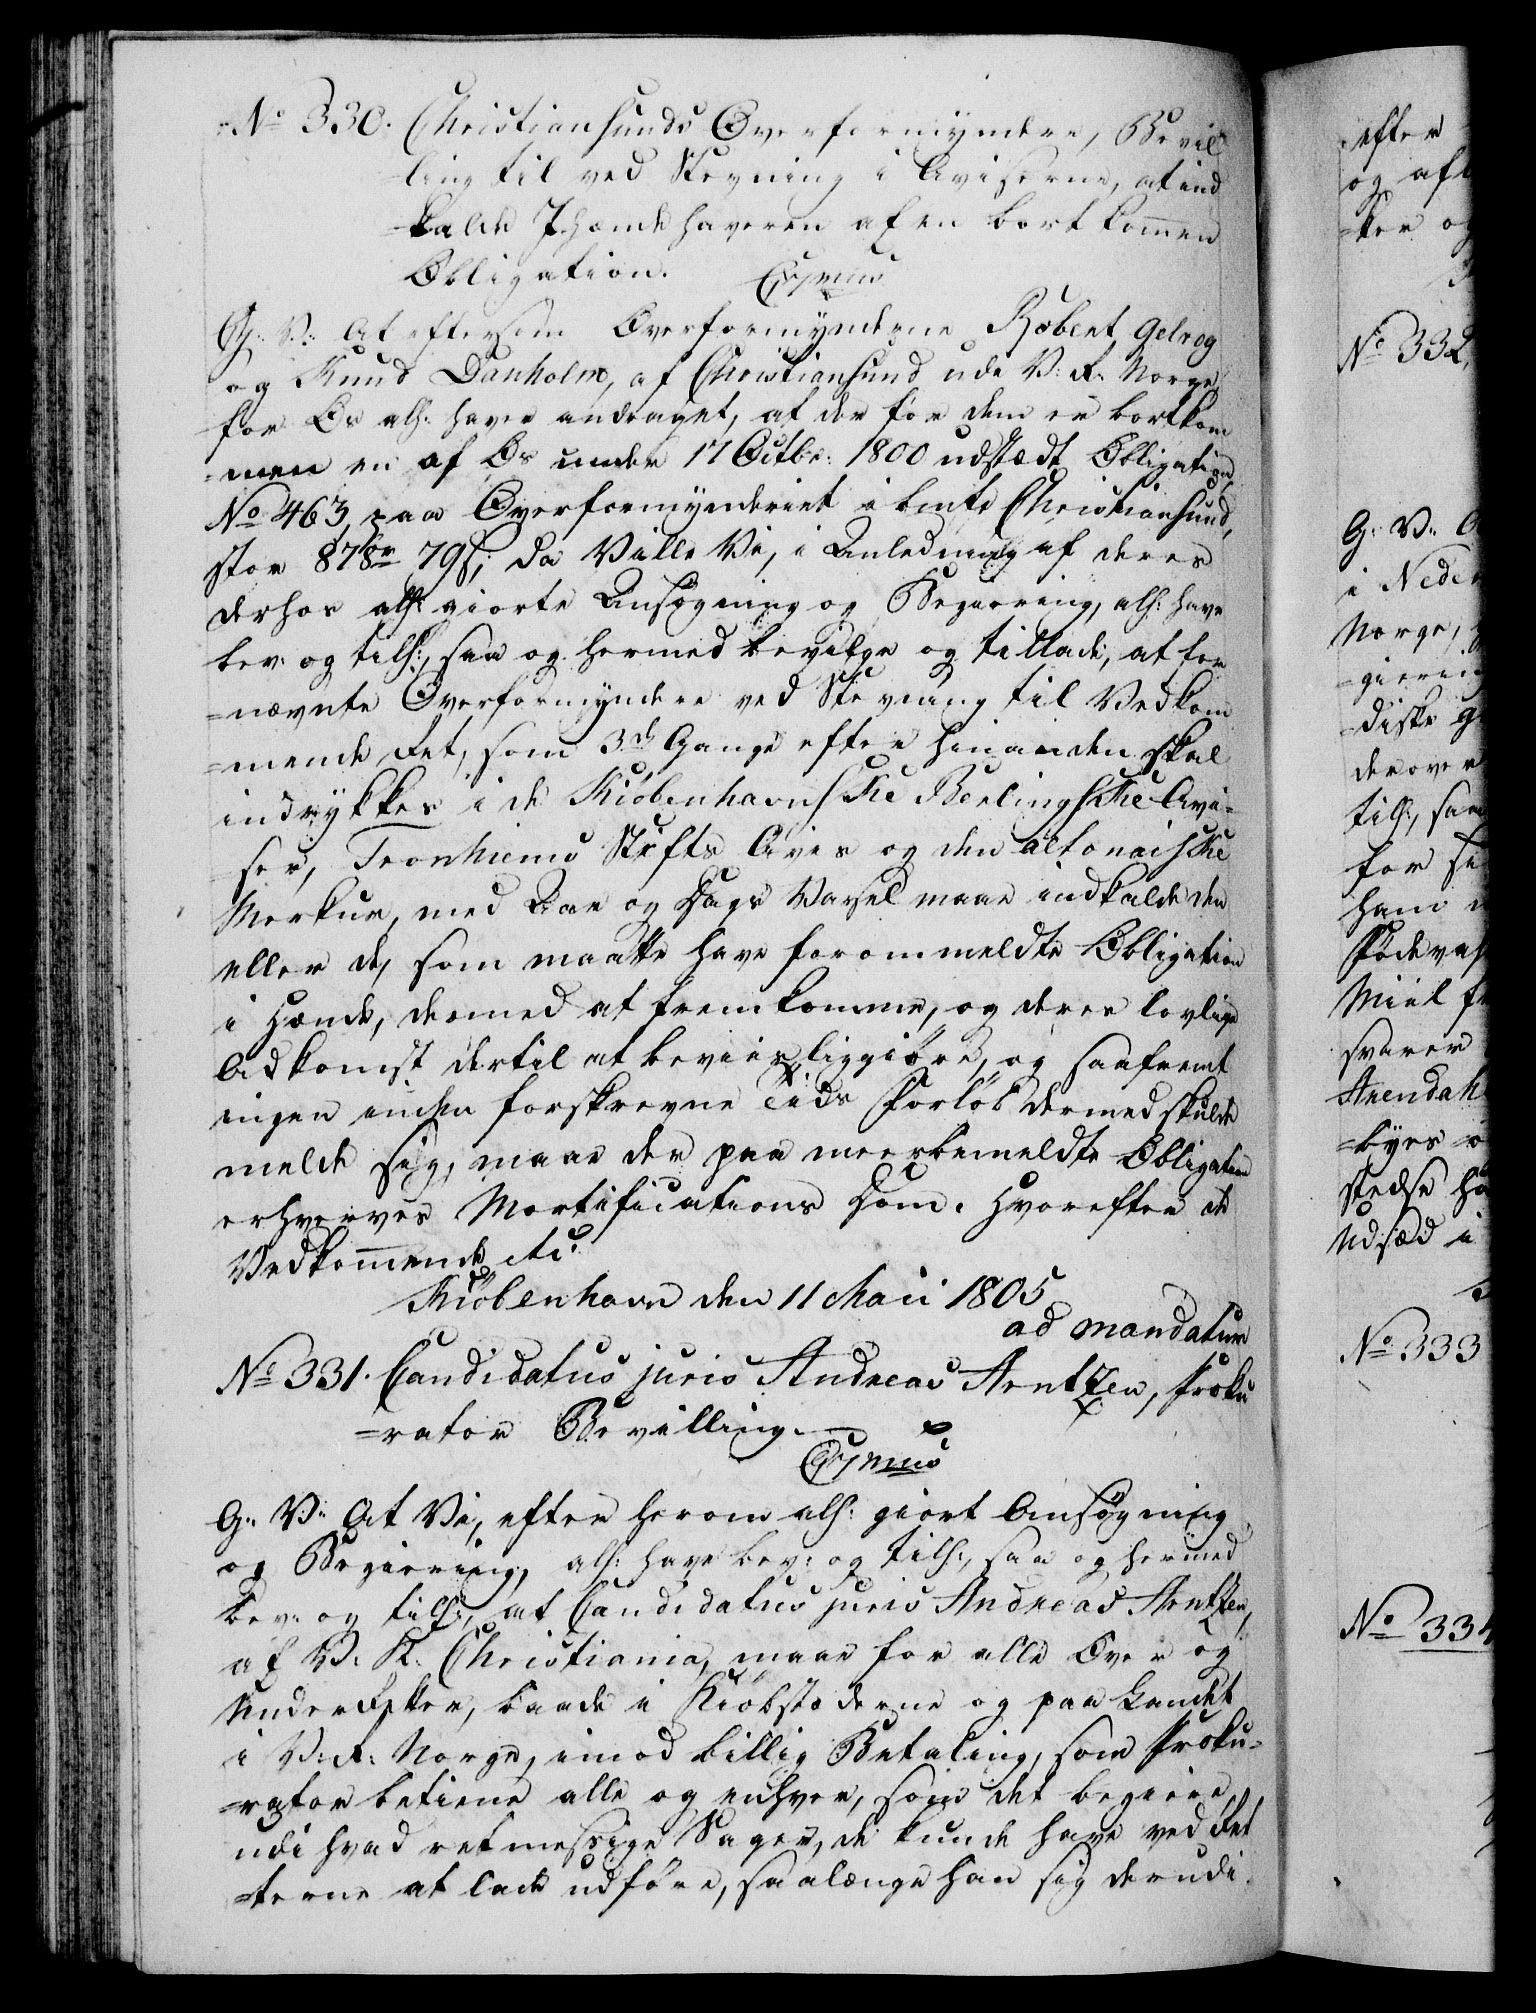 No 330. Christiansunds Overformyndere, Bevil
=ling til ved Stevning i Aviserne, at ind
=kalde Ihændehaveren af en bortkommen
Obligation. C7mus
G: V: At eftersom Overformynderne Robert Gelrog
og Knud Danholm, af Christiansund udi V: R: Norge,
for Os alh: haver andraget, at der for dem er bortkom
=men en af Os under 17 Octbr: 1800 udstædt Obligation,
No 463, paa Overformynderiet i bemte Christiansund,
stor 878 rd 79 s; da Ville Vi, i Anledning af deres
derhos alh: giorte Ansøgning og Begiering, alh: have
bev: og till:, saa og hermed bevilge og tillade, at for
=nævnte Overformyndere ved Stevning til Vedkom
=mende Ret, som 3de Gange efter hinanden skal
indrykkes i de Kiöbenhavnske Berlingske Avi=
ser, Tronhiems Stifts Avis og den altonaiske
Merkur, med Aar og Dags Varsel maae indkalde den
eller de, som maatte have forommeldte Obligation
i Hænde, dermed at fremkomme, og deres lovlige
Adkomst dertil at beviisliggiöre, og saafremt
ingen inden forskrevne Tids Forlöb dermed skulde
melde sig, maae der paa meerbemeldte Obligation
erhverves Mortifications Dom. Hvorefter de
Vedkommende etc.
Kiöbenhavn den 11 Maii 1805
ad mandatum
No 331. Candidatus juris Andreas Arntzen, Proku
=rator Bevilling.
C7mus
G: V: At Vi, efter herom alh: giort Ansøgning
og Begiering, alh: have bev: og till:, saa og hermed
bev: og till:, at Candidatus juris Andreas Arntzen,
af V: K: Christiania, maae for alle Over og
UnderRetter, baade i Kiöbstæderne og paa Landet
i V: R: Norge, imod billig Betaling, som Proku=
=rator betiene alle og enhver, som det begiere,
udi hvad retmessige Sager, de kunde have ved Ret
=terne at lade udföre, saalænge han sig derudi
efter
og af
=ker og
No 332,
G: V: A
i Neder
Norge,
=giering
=diske g
derover
till:, saa
for si
ham
Födevah
Miil f
svarer
Arendah
=byes
stedse ha
Udsæd i
No 333
No 334